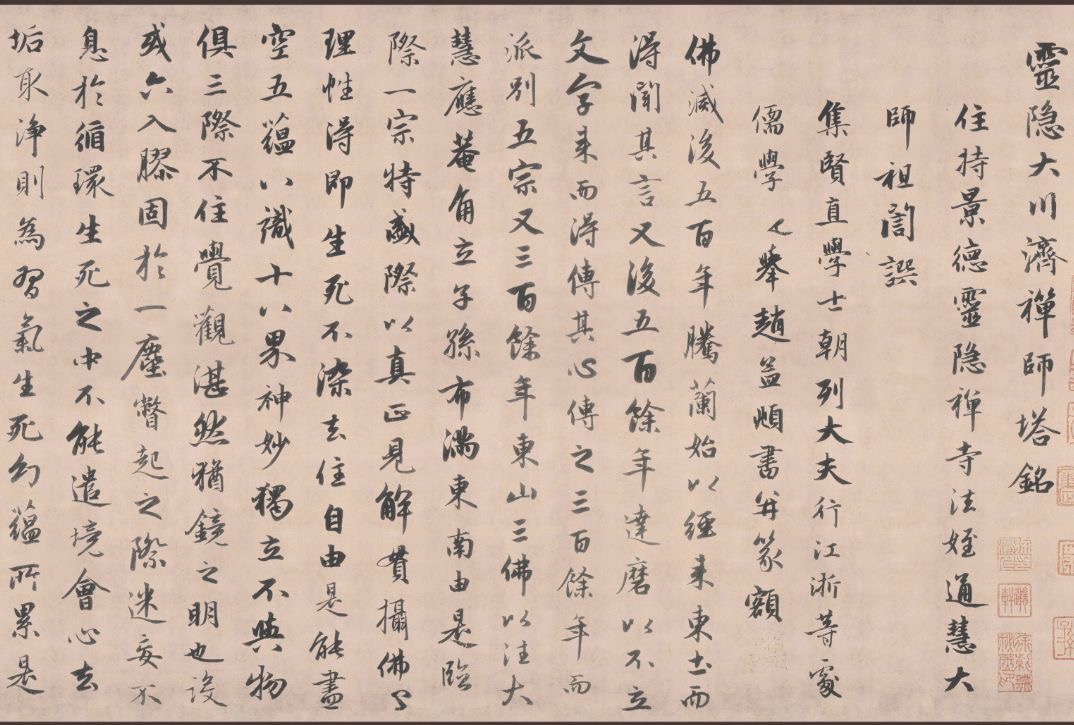 靈隐大川濟禪師塔銘
住持景德靈隐禅寺法姪通慧大
師祖誾譔
集賢直學士朝列大夫行江浙等處
儒學提舉趙孟頫書并篆額
佛滅後五百年騰蘭始以經来東土而
得聞其言又後五百餘年達磨以不立
文字来而得傳其心傳之三百餘年而
派别五宗又三百餘年東山三佛以注大
慧應菴角立子孫布满東南由是臨
際一宗特盛際以真正見解貫攝佛
理性得即生死不染去住自由是能盡
空五蕴八識十八界神妙獨立不與物
俱三際不住覺觀湛然猶鏡之明也设
或六入膠固於一塵瞥起之際迷妄不
息於循環生死之中不能遣境會心去
垢取淨則為習氣生死幻蕴所累是